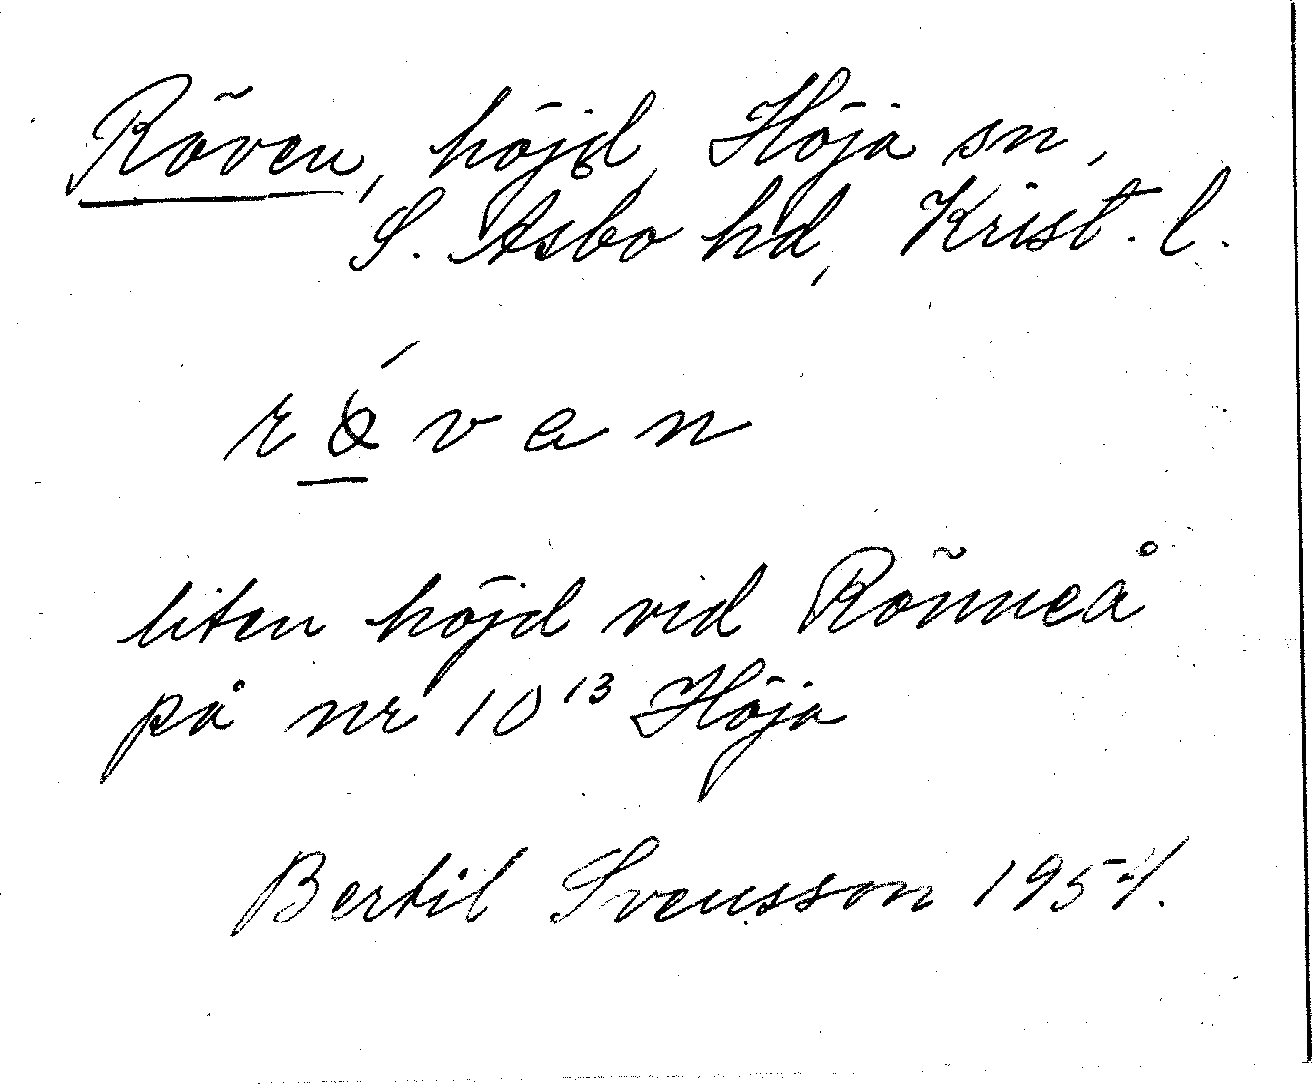 Röven, höjd, Höja sn,
S. Åsbo hd, Krist. l.
rǿvan
liten höjd vid Rönneå
på nr 10¹³ Höja
Bertil Svensson 1954.